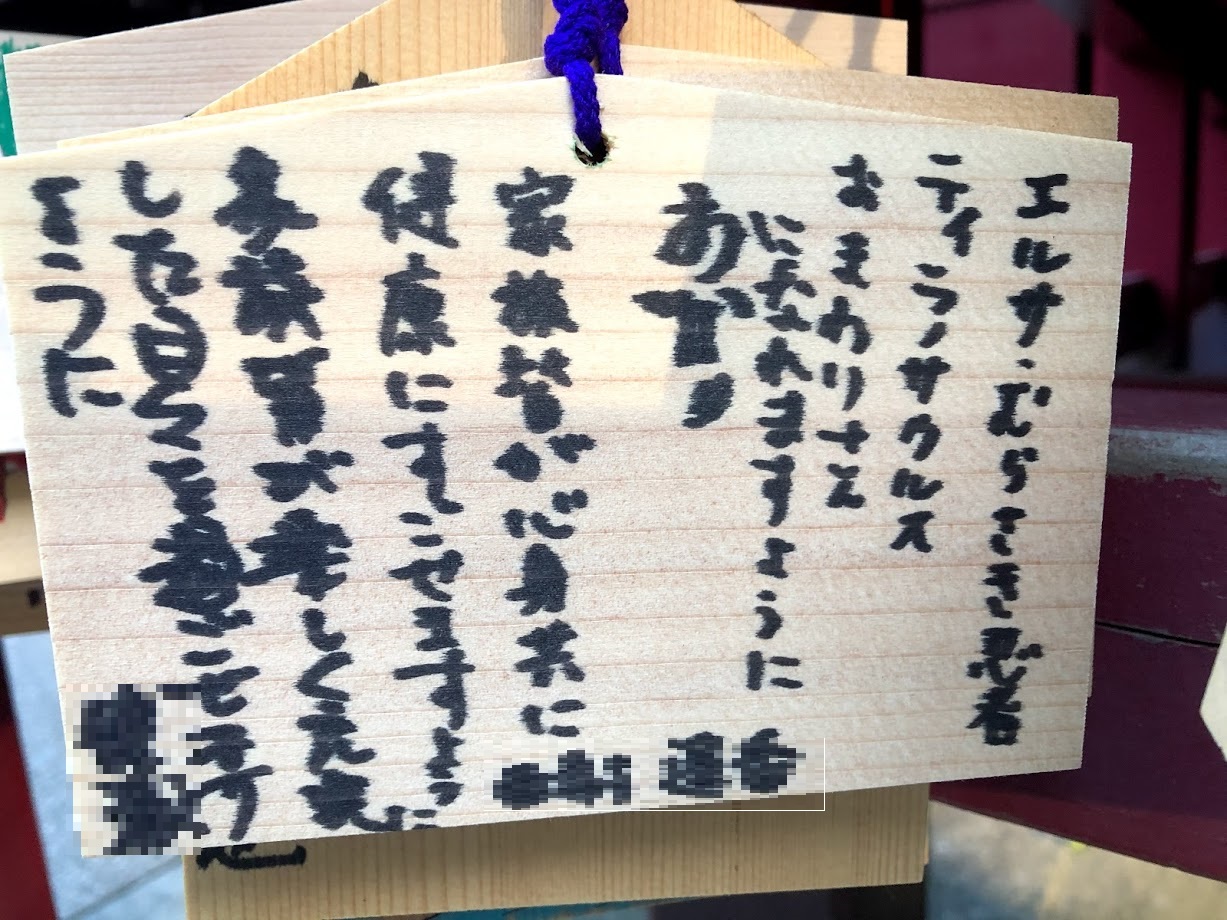 エルサ・むらさき忍者
ティラノサウルス
おまわりさん
になれますように
家族皆が心身共に
健康にすごせますように
が楽しく元気に
日々を過ごせます
ように